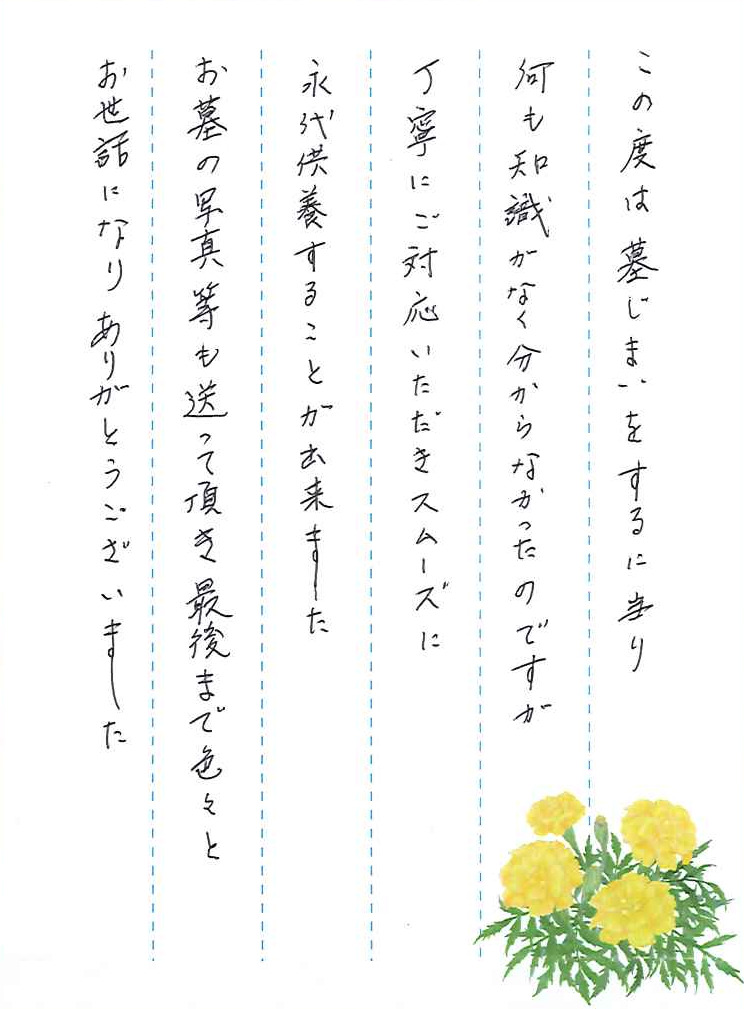 この度は墓じまいをするに当り
何も知識がなく分からなかったのですが
丁寧にご対応いただきスムーズに
永代供養することが出来ました
お墓の写真等も送って頂き最後まで色々と
お世話になりありがとうございました